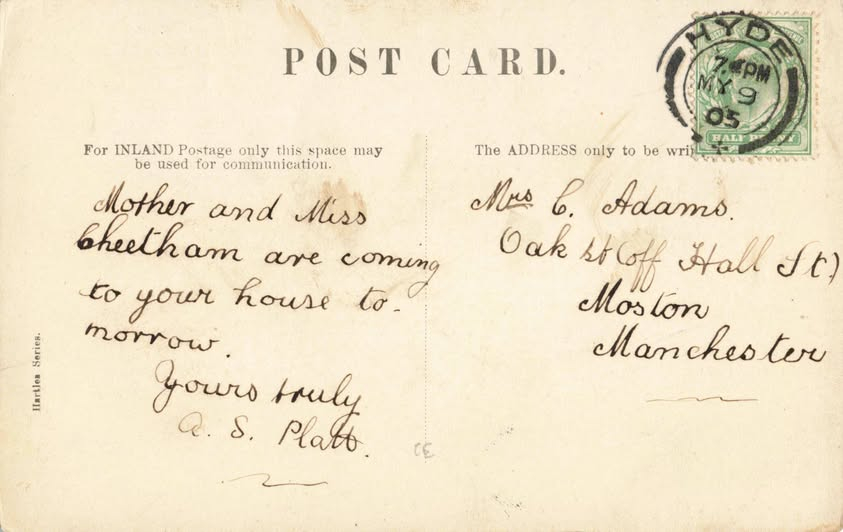 POST CARD.
HYDE
7. PM
MY 9
05
HALF PENNY
For INLAND Postage only this space may
be used for communication.
The ADDRESS only to be wri
Mother and Miss
Cheetham are coming
to your house to-
morrow.
Yours truly
A. S. Platt.
Mrs C. Adams.
Oak st (off Hall St)
Moston
Manchester
Hartles Series.